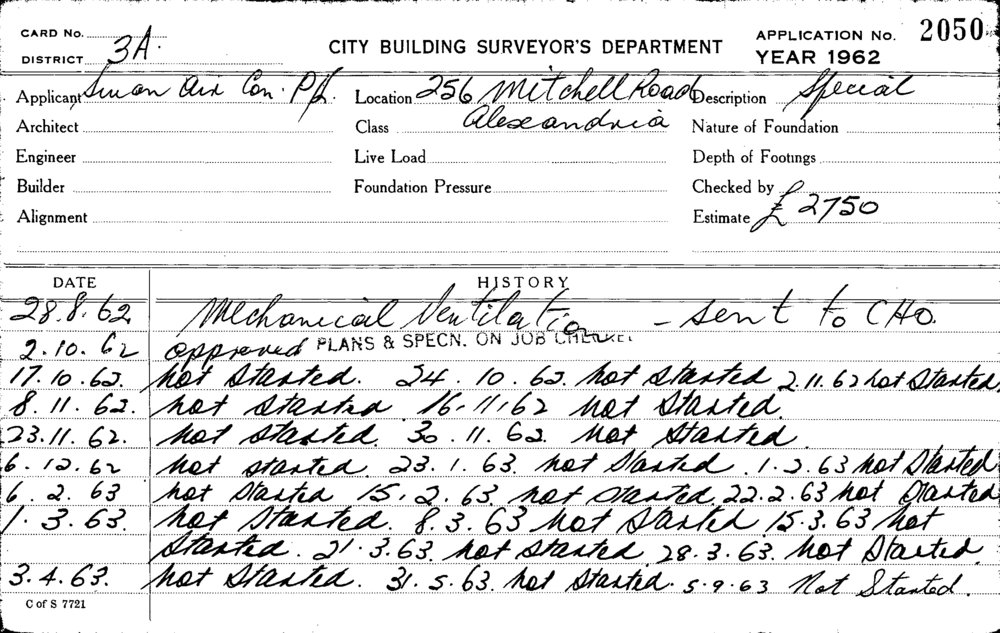 CARD No.
DISTRICT 3A.
CITY BUILDING SURVEYOR'S DEPARTMENT
APPLICATION No. 2050
YEAR 1962
Applicant Swan Air Con. P/L. Location 256 Mitchell Road Description Special
Architect Class Alexandria Nature of Foundation
Engineer Live Load Depth of Footings
Builder Foundation Pressure Checked by
Alignment Estimate £ 2750
DATE HISTORY
28.8.62 Mechanical Ventilation - sent to CHO.
2.10.62 approved PLANS & SPECN. ON JOB
17.10.62. Not Started. 24.10.62. Not Started 2.11.62 Not Started.
8.11.62. Not Started 16.11.62 Not Started.
23.11.62. Not Started. 30.11.62. Not Started.
6.12.62 Not Started. 23.1.63. Not Started. 1.2.63 Not Started
6.2.63 Not Started 15.2.63 Not Started 22.2.63 Not Started
1.3.63. Not Started. 8.3.63 Not Started 15.3.63 Not
Started. 21.3.63. Not Started 28.3.63. Not Started
3.4.63. Not Started. 31.5.63. Not Started. 5.9.63 Not Started.
C of S 7721